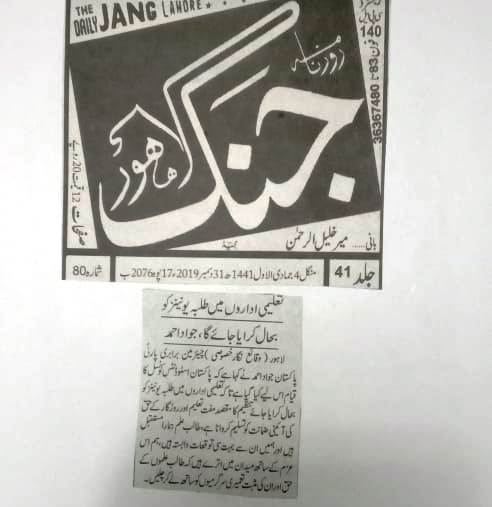 THE DAILY JANG LAHORE
140
فون 83 تا
36367480
روزنامہ
جنگ
لاہور
صفحات 12 قیمت 20 روپے
بانی ...... میر خلیل الرحمٰن
جلد 41
منگل 4 جمادی الاول 1441ھ 31 دسمبر 2019ء 17 پوہ 2076 ب
شمارہ 80
تعلیمی اداروں میں طلبہ یونینز کو
بحال کرایا جائے گا، جواد احمد
لاہور (وقائع نگار خصوصی) چیئرمین برابری پارٹی
پاکستان جواد احمد نے کہا ہے کہ پاکستان اسٹوڈنٹس کونسل کا
قیام اس لیے کیا گیا ہے تاکہ تعلیمی اداروں میں طلبہ یونینز کو
بحال کرایا جائے تنظیم کا مقصد مفت تعلیم اور روزگار کے حق
کی آئینی ضمانت کو تسلیم کروانا ہے، طالب علم ہمارا مستقبل
ہیں اور ہمیں ان سے بہت سی توقعات وابستہ ہیں، ہم اس
عزم کے ساتھ میدان میں اترے ہیں کہ طالب علموں کے
حق اور ان کی مثبت تعمیری سرگرمیوں کو ساتھ لے کر چلیں۔